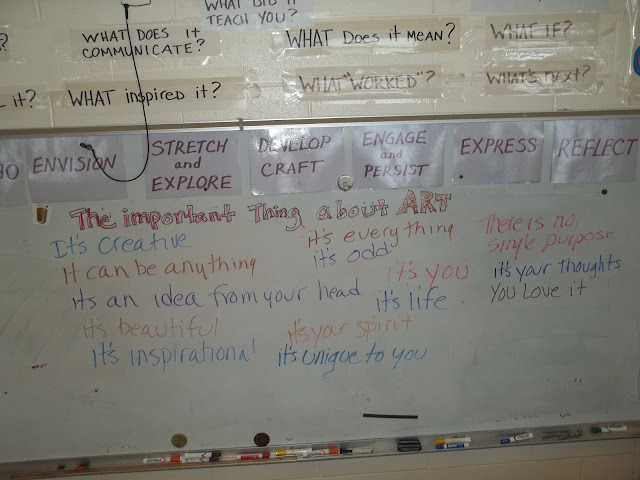 WHAT DID IT
TEACH YOU?
WHAT DOES it
COMMUNICATE?
WHAT Does it MEAN?
WHAT IF?
it?
WHAT inspired it?
WHAT "WORKED"?
WHAT'S next?
HO
ENVISION
STRETCH
and
EXPLORE
DEVELOP
CRAFT
ENGAGE
and
PERSIST
EXPRESS
REFLECT
The important Thing about ART
It's Creative
it's everything
There is no
single purpose
it's odd
It can be anything
it's you
it's your thoughts
its an idea from your head
it's life
You Love it
it's beautiful
it's your spirit
it's inspirational
it's unique to you